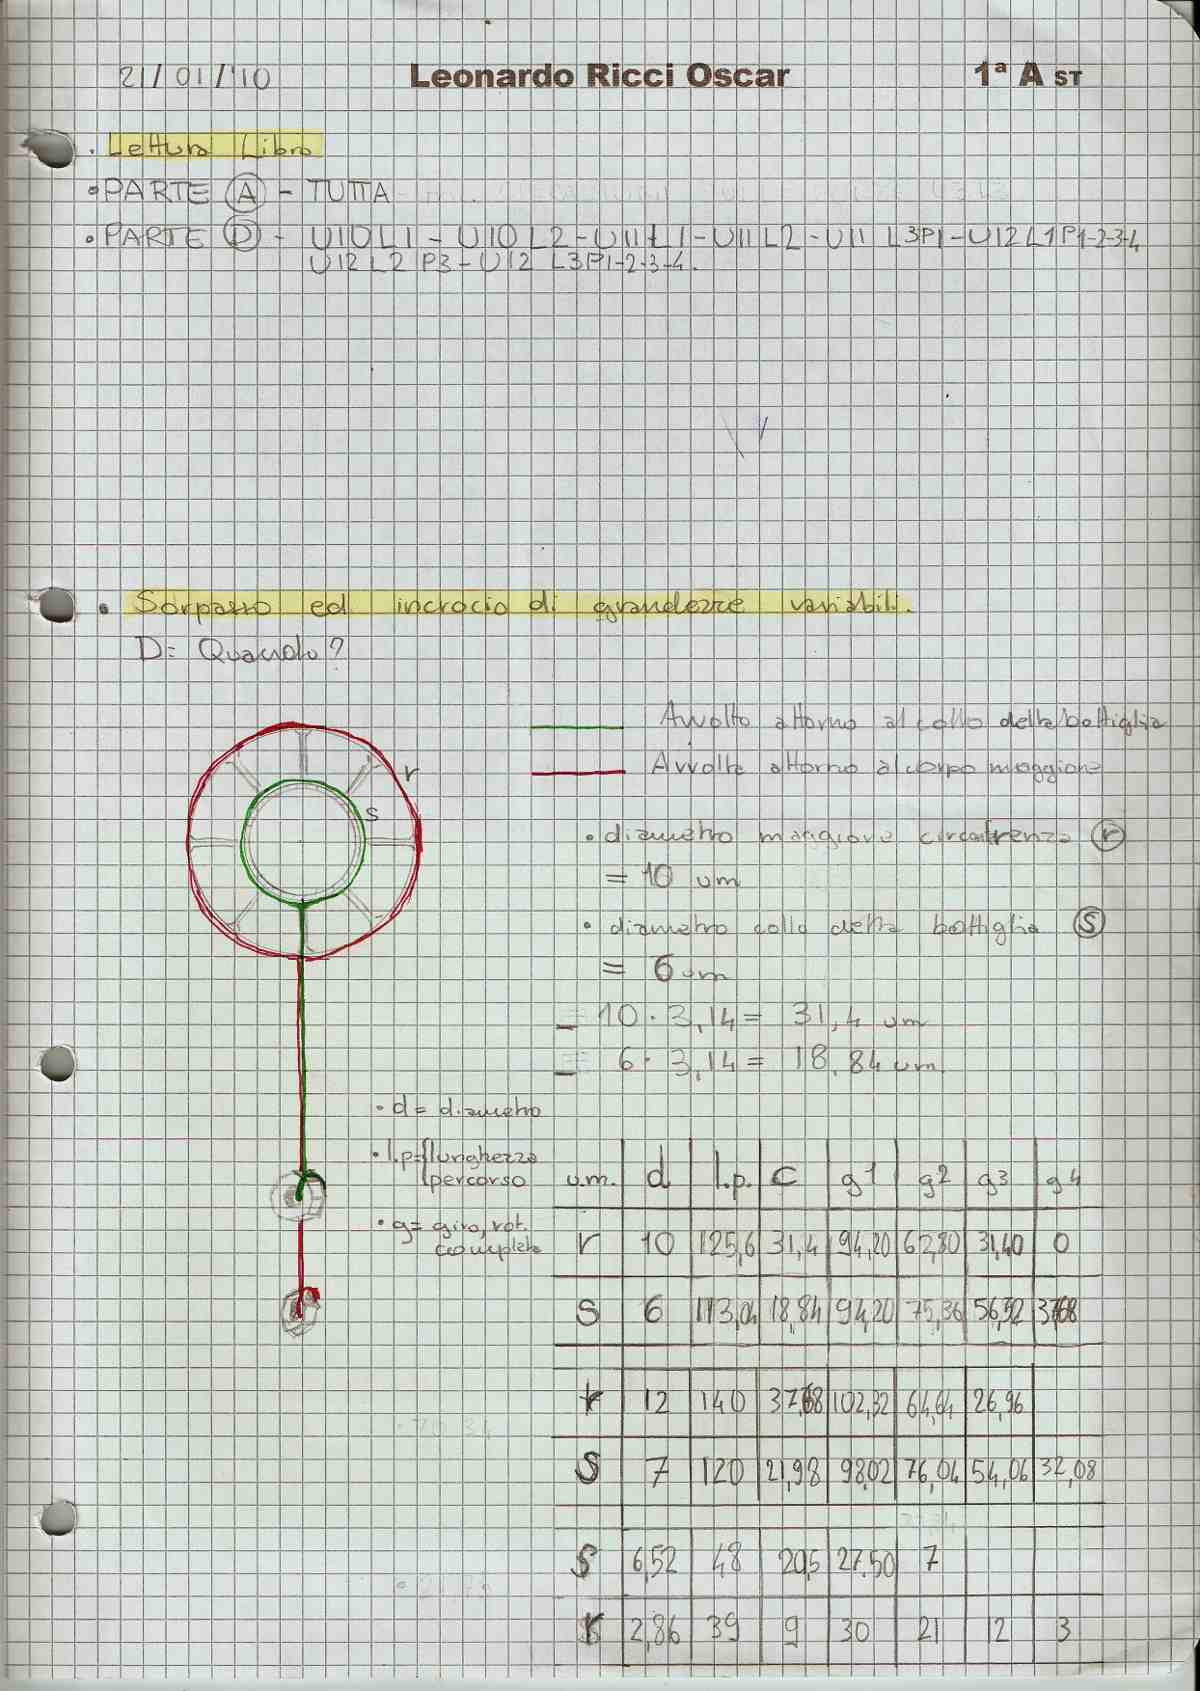 21/01/'10 Leonardo Ricci Oscar 1ª A ST
• Lettura Libro
• PARTE A - TUTTA
• PARTE D - U10L1 - U10L2 - U11L1 - U11L2 - U11 L3P1 - U12L1P1-2-3-4
U12L2 P3 - U12 L3P1-2-3-4.
• Sorpasso ed incrocio di grandezze variabili.
D= Quando?
Avvolto attorno al collo della bottiglia
Avvolto attorno al corpo maggiore
r
s
• diametro maggiore circonfrenza r
= 10 um
• diametro collo della bottiglia S
= 6 um
= 10 · 3,14 = 31,4 um
= 6 · 3,14 = 18,84 um
• d = diametro
• l.p = lunghezza
percorso
• g = giro, rot.
completa
u.m. d l.p. C g1 g2 g3 g4
r 10 125,6 31,4 94,20 62,80 31,40 0
S 6 113,04 18,84 94,20 75,36 56,52 37,68
r 12 140 37,68 102,32 64,64 26,96
S 7 120 21,98 98,02 76,04 54,06 32,08
S 6,52 48 20,5 27,50 7
r 2,86 39 9 30 21 12 3